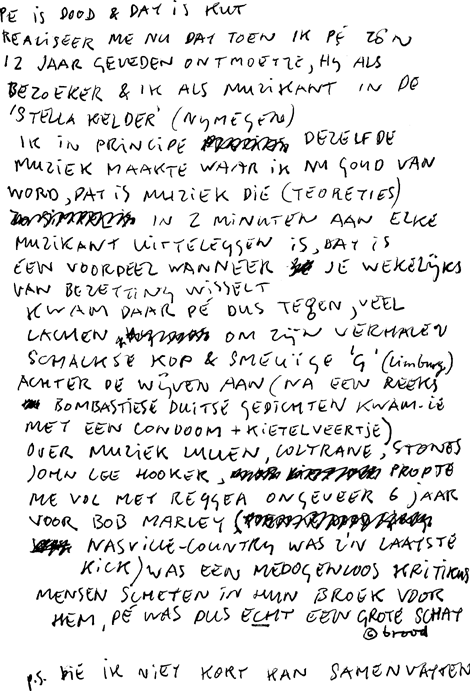 PÉ IS DOOD & DAT IS KUT
REALISEER ME NU DAT TOEN IK PÉ ZO'N
12 JAAR GELEDEN ONTMOETTE, HY ALS
BEZOEKER & IK ALS MUZIKANT IN DE
'STELLA KELDER' (NYMEGEN)
IK IN PRINCIPE DEZELFDE
MUZIEK MAAKTE WAAR IK NU GOUD VAN
WORD, DAT IS MUZIEK DIE (TEORETIES)
IN 2 MINUTEN AAN ELKE
MUZIKANT UITTELEGGEN IS, DAT IS
EEN VOORDEEL WANNEER JE WEKELYKS
VAN BEZETTING WISSELT
KWAM DAAR PÉ DUS TEGEN, VEEL
LACHEN, OM ZYN VERHALEN
SCHALKSE KOP & SMEUIGE 'G' (Limburg)
ACHTER DE WYVEN AAN (NA EEN REEKS
BOMBASTIESE DUITSE GEDICHTEN KWAM-IE
MET EEN CONDOOM + KIETELVEERTJE)
OVER MUZIEK LULLEN, COLTRANE, STONES
JOHN LEE HOOKER, PROPTE
ME VOL MET REGGEA ONGEVEER 6 JAAR
VOOR BOB MARLEY
NASVILLE-COUNTRY WAS Z'N LAATSTE
KICK) WAS EEN MEDOGENLOOS KRITIKUS
MENSEN SCHETEN IN HUN BROEK VOOR
HEM, PÉ WAS DUS ECHT EEN GROTE SCHAT
© brood
p.s. DIE IK NIET KORT KAN SAMENVATTEN